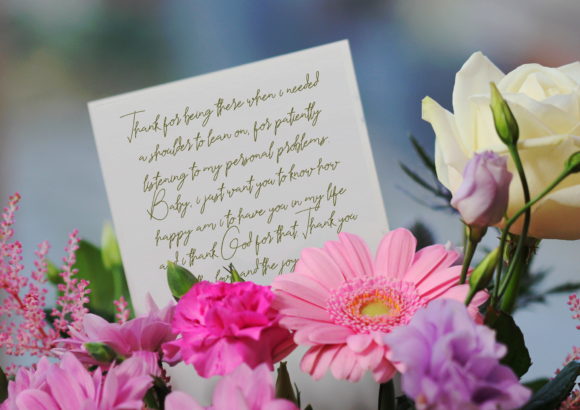 Thank for being there when i needed
a shoulder to lean on, for patiently
listening to my personal problems.
Baby, i just want you to know how
happy am i to have you in my life
and i thank God for that. Thank you
and the joy